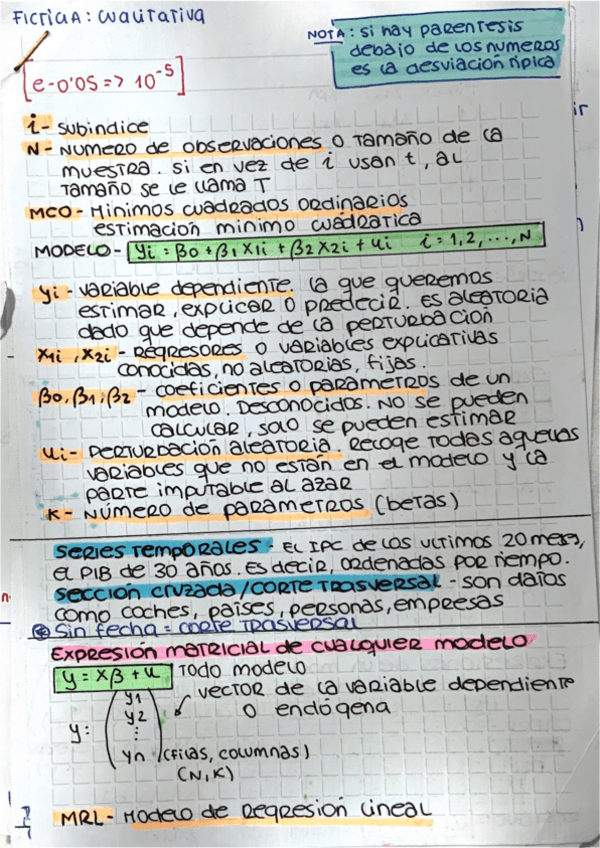 Ficticia: cualitativa
NOTA: si hay parentesis
debajo de los numeros
es la desviación típica
[e-0'05 => 10⁻⁵]
i- subindice
N- Numero de observaciones o tamaño de la
muestra. si en vez de i usan t, al
tamaño se le llama T
MCO- Minimos cuadrados ordinarios
estimación minimo cuadratica
MODELO- Yi = β0 + β1 X1i + β2 X2i + ui i = 1,2, ..., N
yi - variable dependiente. la que queremos
estimar, explicar o predecir. Es aleatoria
dado que depende de la perturbacion
X1i, X2i - Regresores o variables explicativas
conocidas, no aleatorias, fijas.
β0, β1, β2 - coeficientes o parametros de un
modelo. Desconocidos. No se pueden
calcular, solo se pueden estimar
ui- Perturbación aleatoria. Recoge todas aquellas
variables que no están en el modelo y la
parte imputable al azar
K- Número de parametros (betas)
Series temporales - El IPC de los ultimos 20 meses,
el PIB de 30 años. Es decir, ordenadas por tiempo.
Sección cruzada/corte trasversal - son datos
como coches, países, personas, empresas
Sin fecha = corte trasversal
Expresión matricial de cualquier modelo
y = Xβ + u Todo modelo
vector de la variable dependiente
o endógena
y: ( y1
y2
⋮
yn ) (filas, columnas)
(N, K)
MRL- Modelo de Regresion Lineal